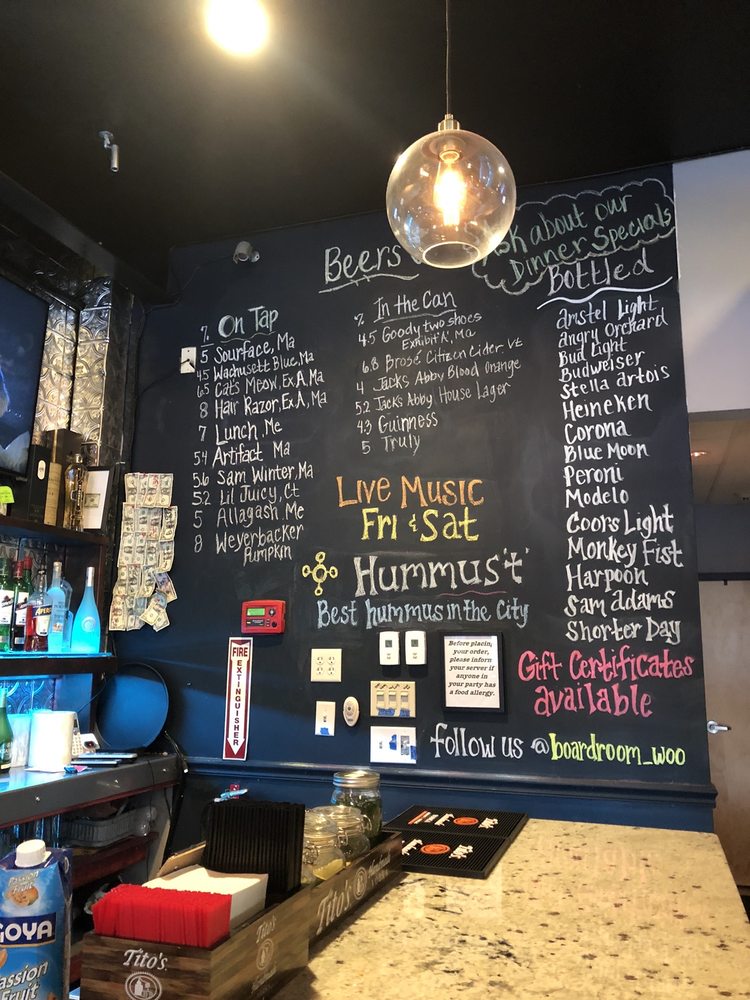 Ask about our
Dinner Specials
Beers
% On Tap
5 Sourface, Ma
4.5 Wachusett Blue, Ma
6.5 Cats Meow, Ex.A, Ma
8 Hair Razor, Ex.A, Ma
7 Lunch, Me
5.4 Artifact Ma
5.6 Sam Winter, Ma
5.2 Lil Juicy, Ct
5 Allagash, Me
8 Weyerbacker
Pumpkin
% In the Can
4.5 Goody two shoes
Exhibit 'A', Ma
6.8 Brosé Citizen Cider, Vt
4 Jacks Abby Blood Orange
5.2 Jack's Abby House Lager
4.3 Guinness
5 Truly
Bottled
Amstel Light
Angry Orchard
Bud Light
Budweiser
Stella Artois
Heineken
Corona
Blue Moon
Peroni
Modelo
Coors Light
Monkey Fist
Harpoon
Sam Adams
Shorter Day
Live Music
Fri & Sat
Hummus 't'
Best hummus in the City
Before placin,
your order,
please inform
your server if
anyone in
your party has
a food allergy.
Gift Certificates
available
follow us @boardroom_woo
FIRE
EXTINGUISHER
Tito's
Handmade
Tito's
Tito's
Passion
Fruit
GOYA
Passion
Fruit